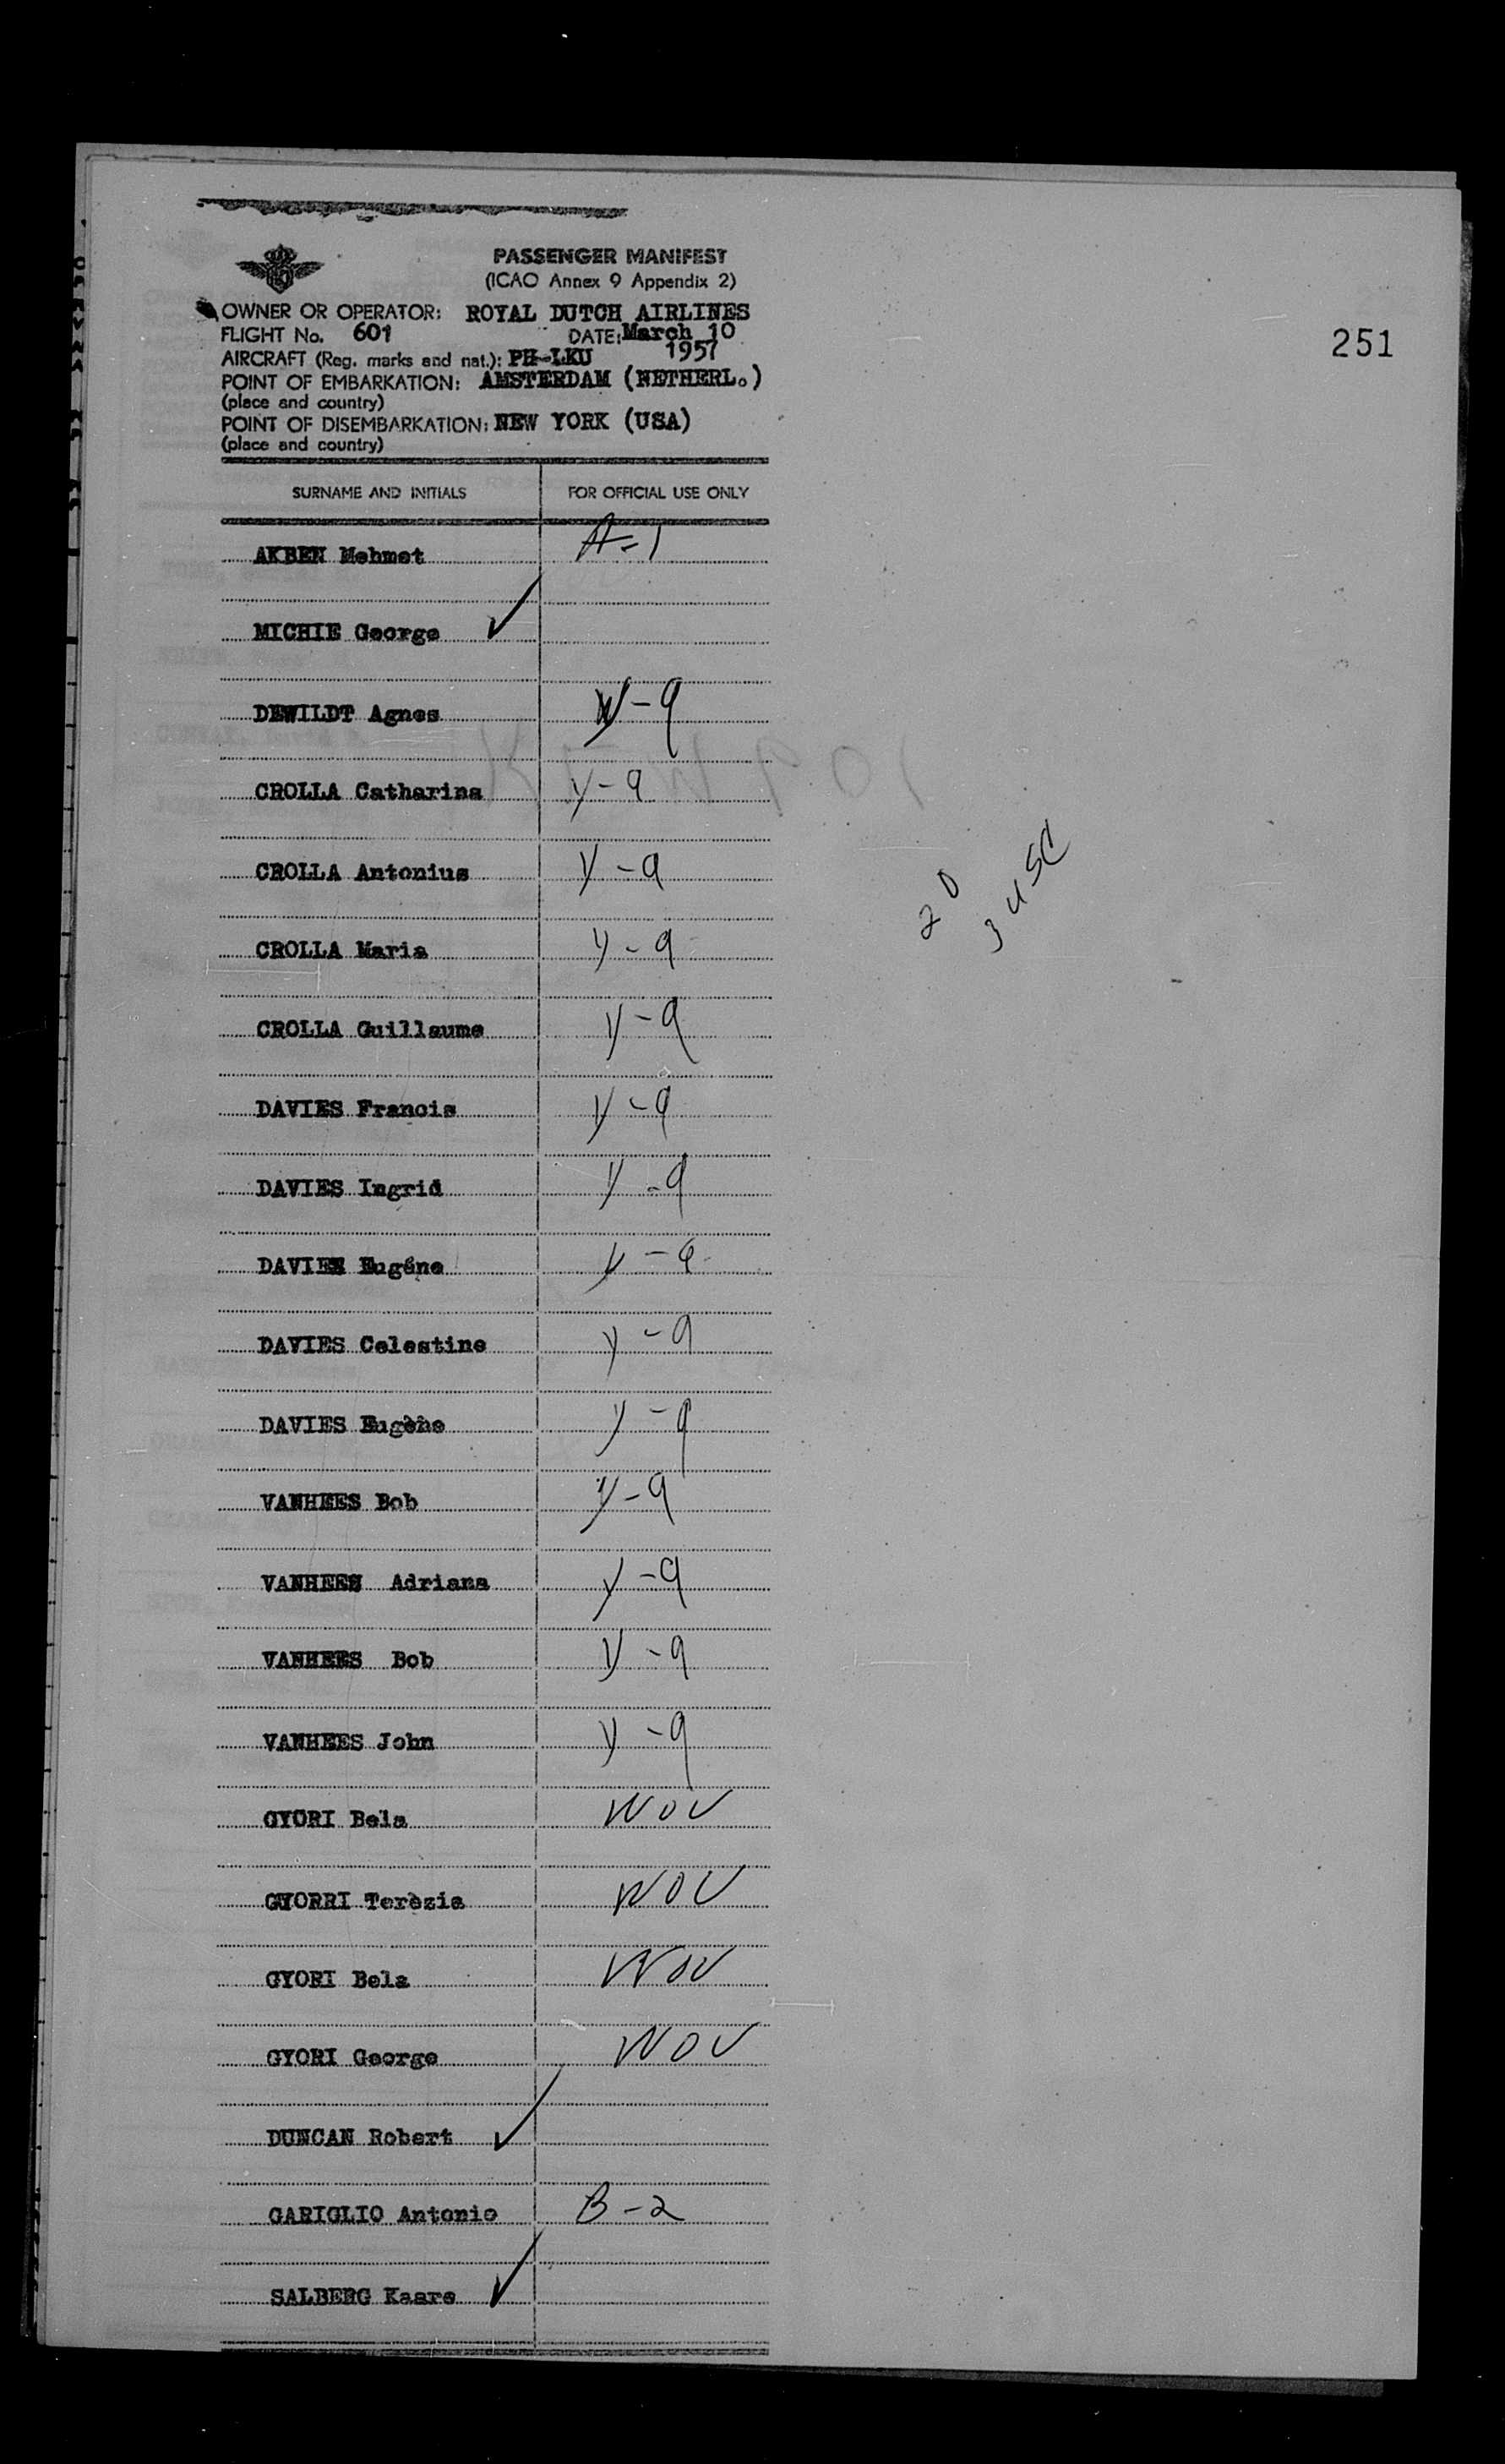 PASSENGER MANIFEST
(ICAO Annex 9 Appendix 2)
OWNER OR OPERATOR: ROYAL DUTCH AIRLINES
FLIGHT No. 601 DATE: March 10
1957
251
AIRCRAFT (Reg. marks and nat.): PH-LKU
POINT OF EMBARKATION: AMSTERDAM (NETHERL.)
(place and country)
POINT OF DISEMBARKATION: NEW YORK (USA)
(place and country)
SURNAME AND INITIALS FOR OFFICIAL USE ONLY
AKBEN Mehmet A-1
MICHIE George ✓
DEWILDT Agnes Y-9
CROLLA Catharina Y-9
CROLLA Antonius Y-9
CROLLA Maria Y-9
CROLLA Guillaume Y-9
DAVIES Francis Y-9
DAVIES Ingrid Y-9
DAVIES Eugêne Y-9
DAVIES Celestine Y-9
DAVIES Eugène Y-9
VANHEES Bob Y-9
VANHEES Adriana Y-9
VANHEES Bob Y-9
VANHEES John Y-9
GYORI Bela WOV
GYORRI Terèzia WOV
GYORI Bela WOV
GYORI George WOV
DUNCAN Robert ✓
GARIGLIO Antonio B-2
SALBERG Kaare ✓
20
3 USC